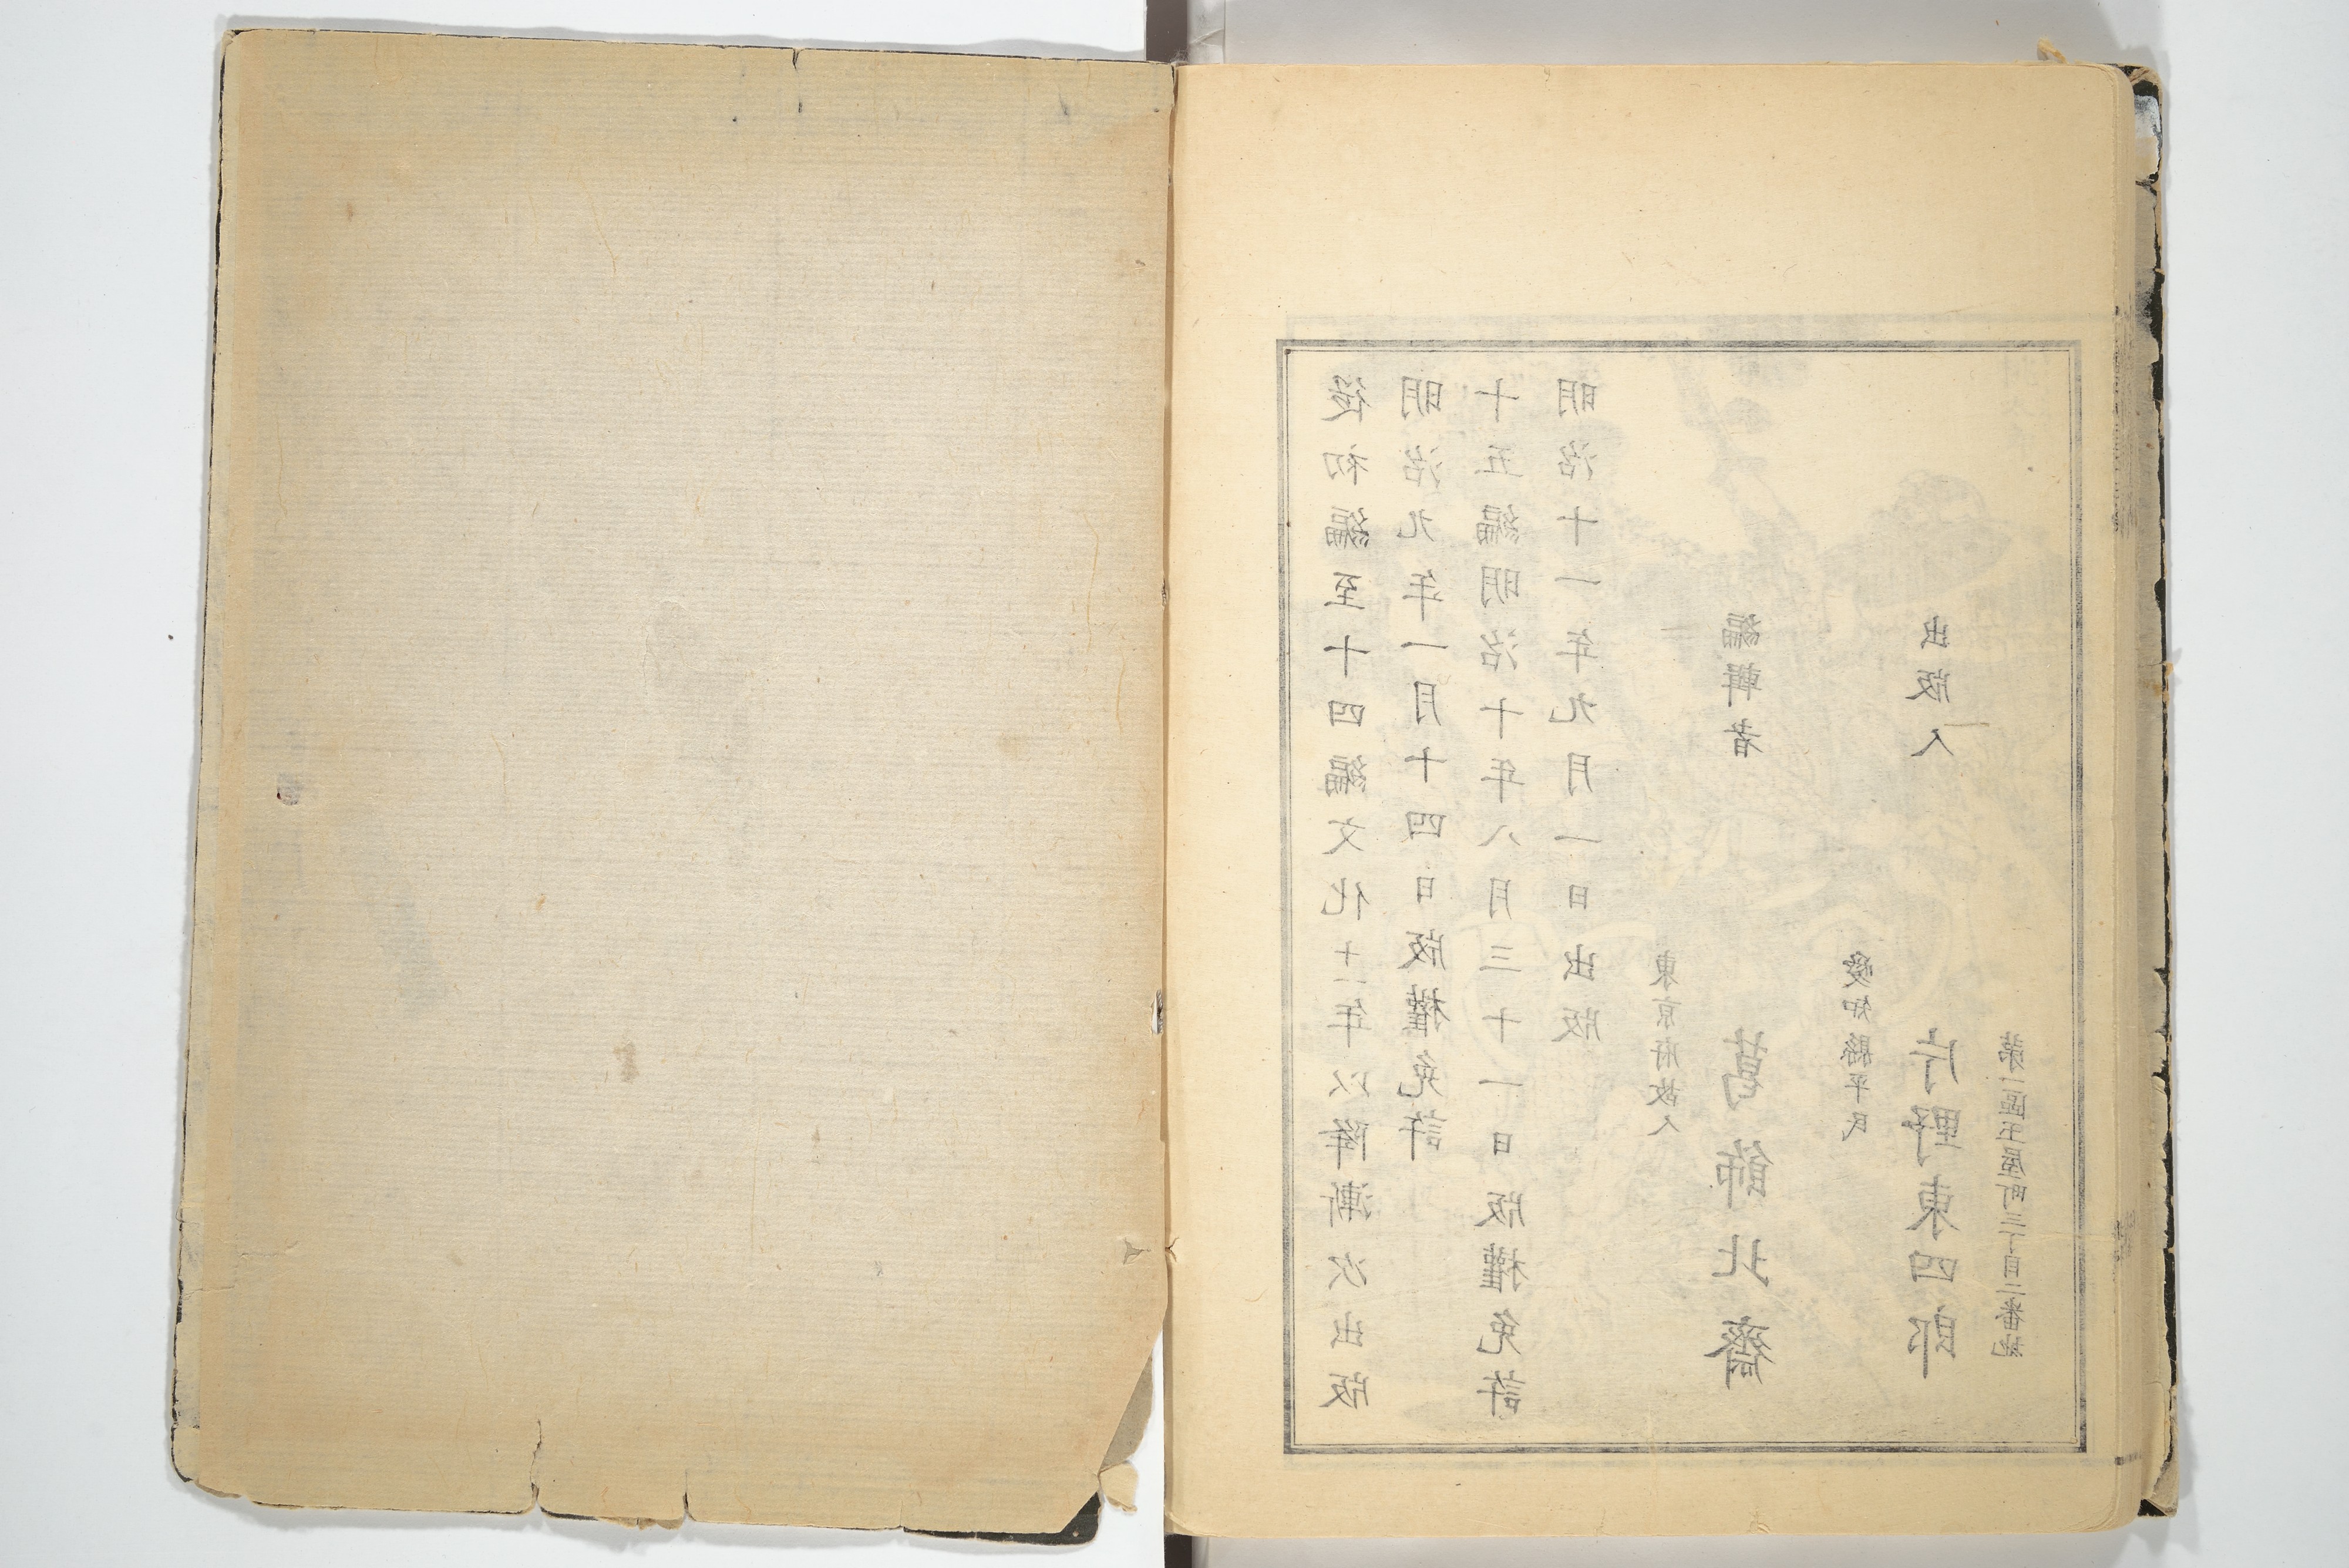 從初編至十四編文化十一年以降漸次出版
明治九年一月十四日版權免許
十五編明治十年八月三十一日版權免許
明治十一年九月一日出版
東京府故人
編輯者 葛飾北齋
愛知縣平民
出版人 片野東四郎
第一區玉屋町三丁目二番地